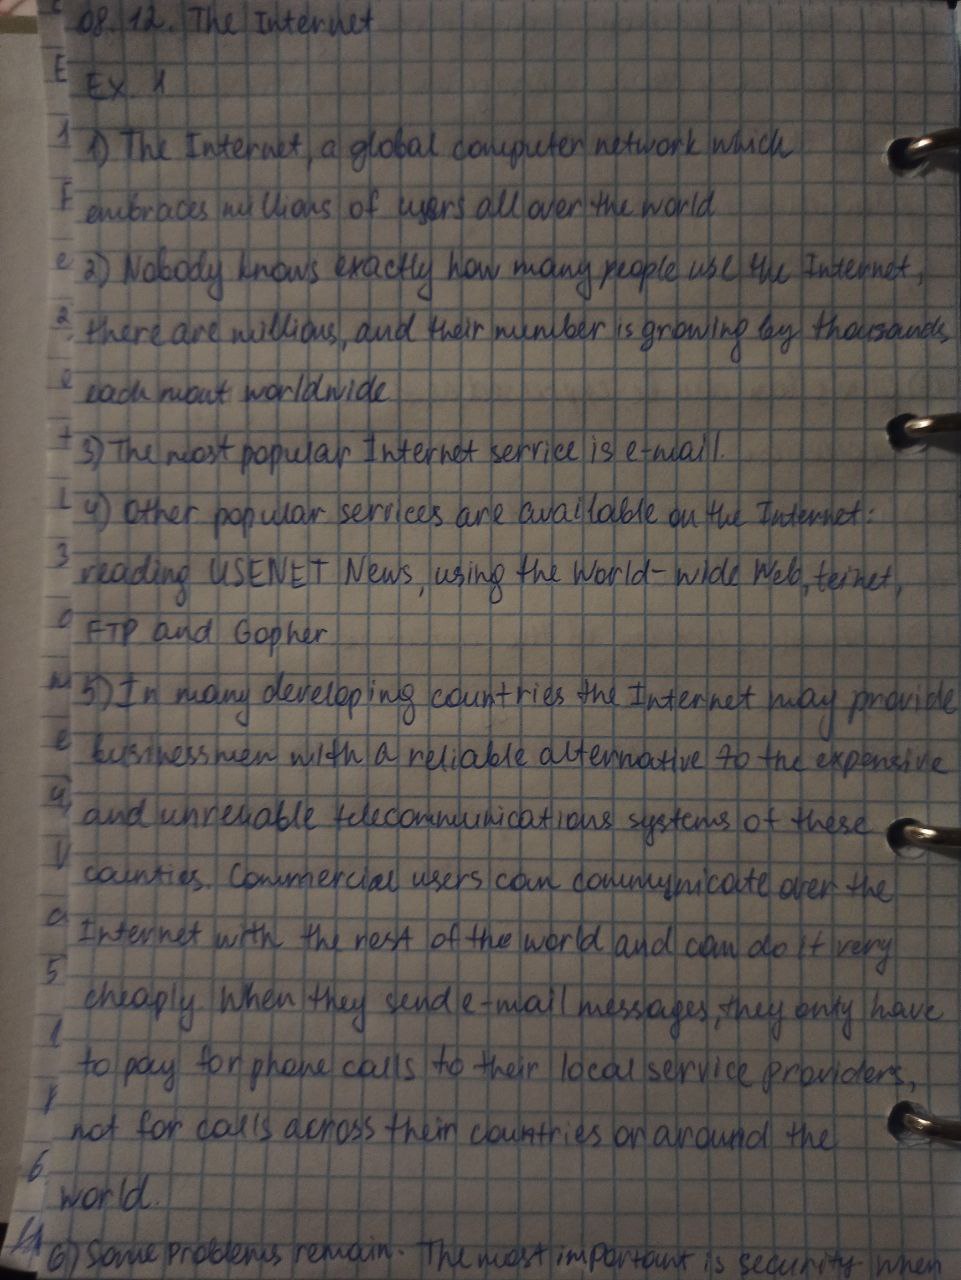 08.12. The Internet
Ex. 1
1) The Internet, a global computer network which
embraces millions of users all over the world
2) Nobody knows exactly how many people use the Internet,
there are millions, and their number is growing by thousands
each mont worldwide
3) The most popular Internet service is e-mail.
4) Other popular services are available on the Internet:
reading USENET News, using the World-wide Web, telnet,
FTP and Gopher
5) In many developing countries the Internet may provide
businessmen with a reliable alternative to the expensive
and unreliable telecommunications systems of these
counties. Commercial users can communicate over the
Internet with the rest of the world and can do it very
cheaply. When they send e-mail messages, they only have
to pay for phone calls to their local service providers,
not for calls across their countries or around the
world.
6) Some problems remain. The most important is security. When